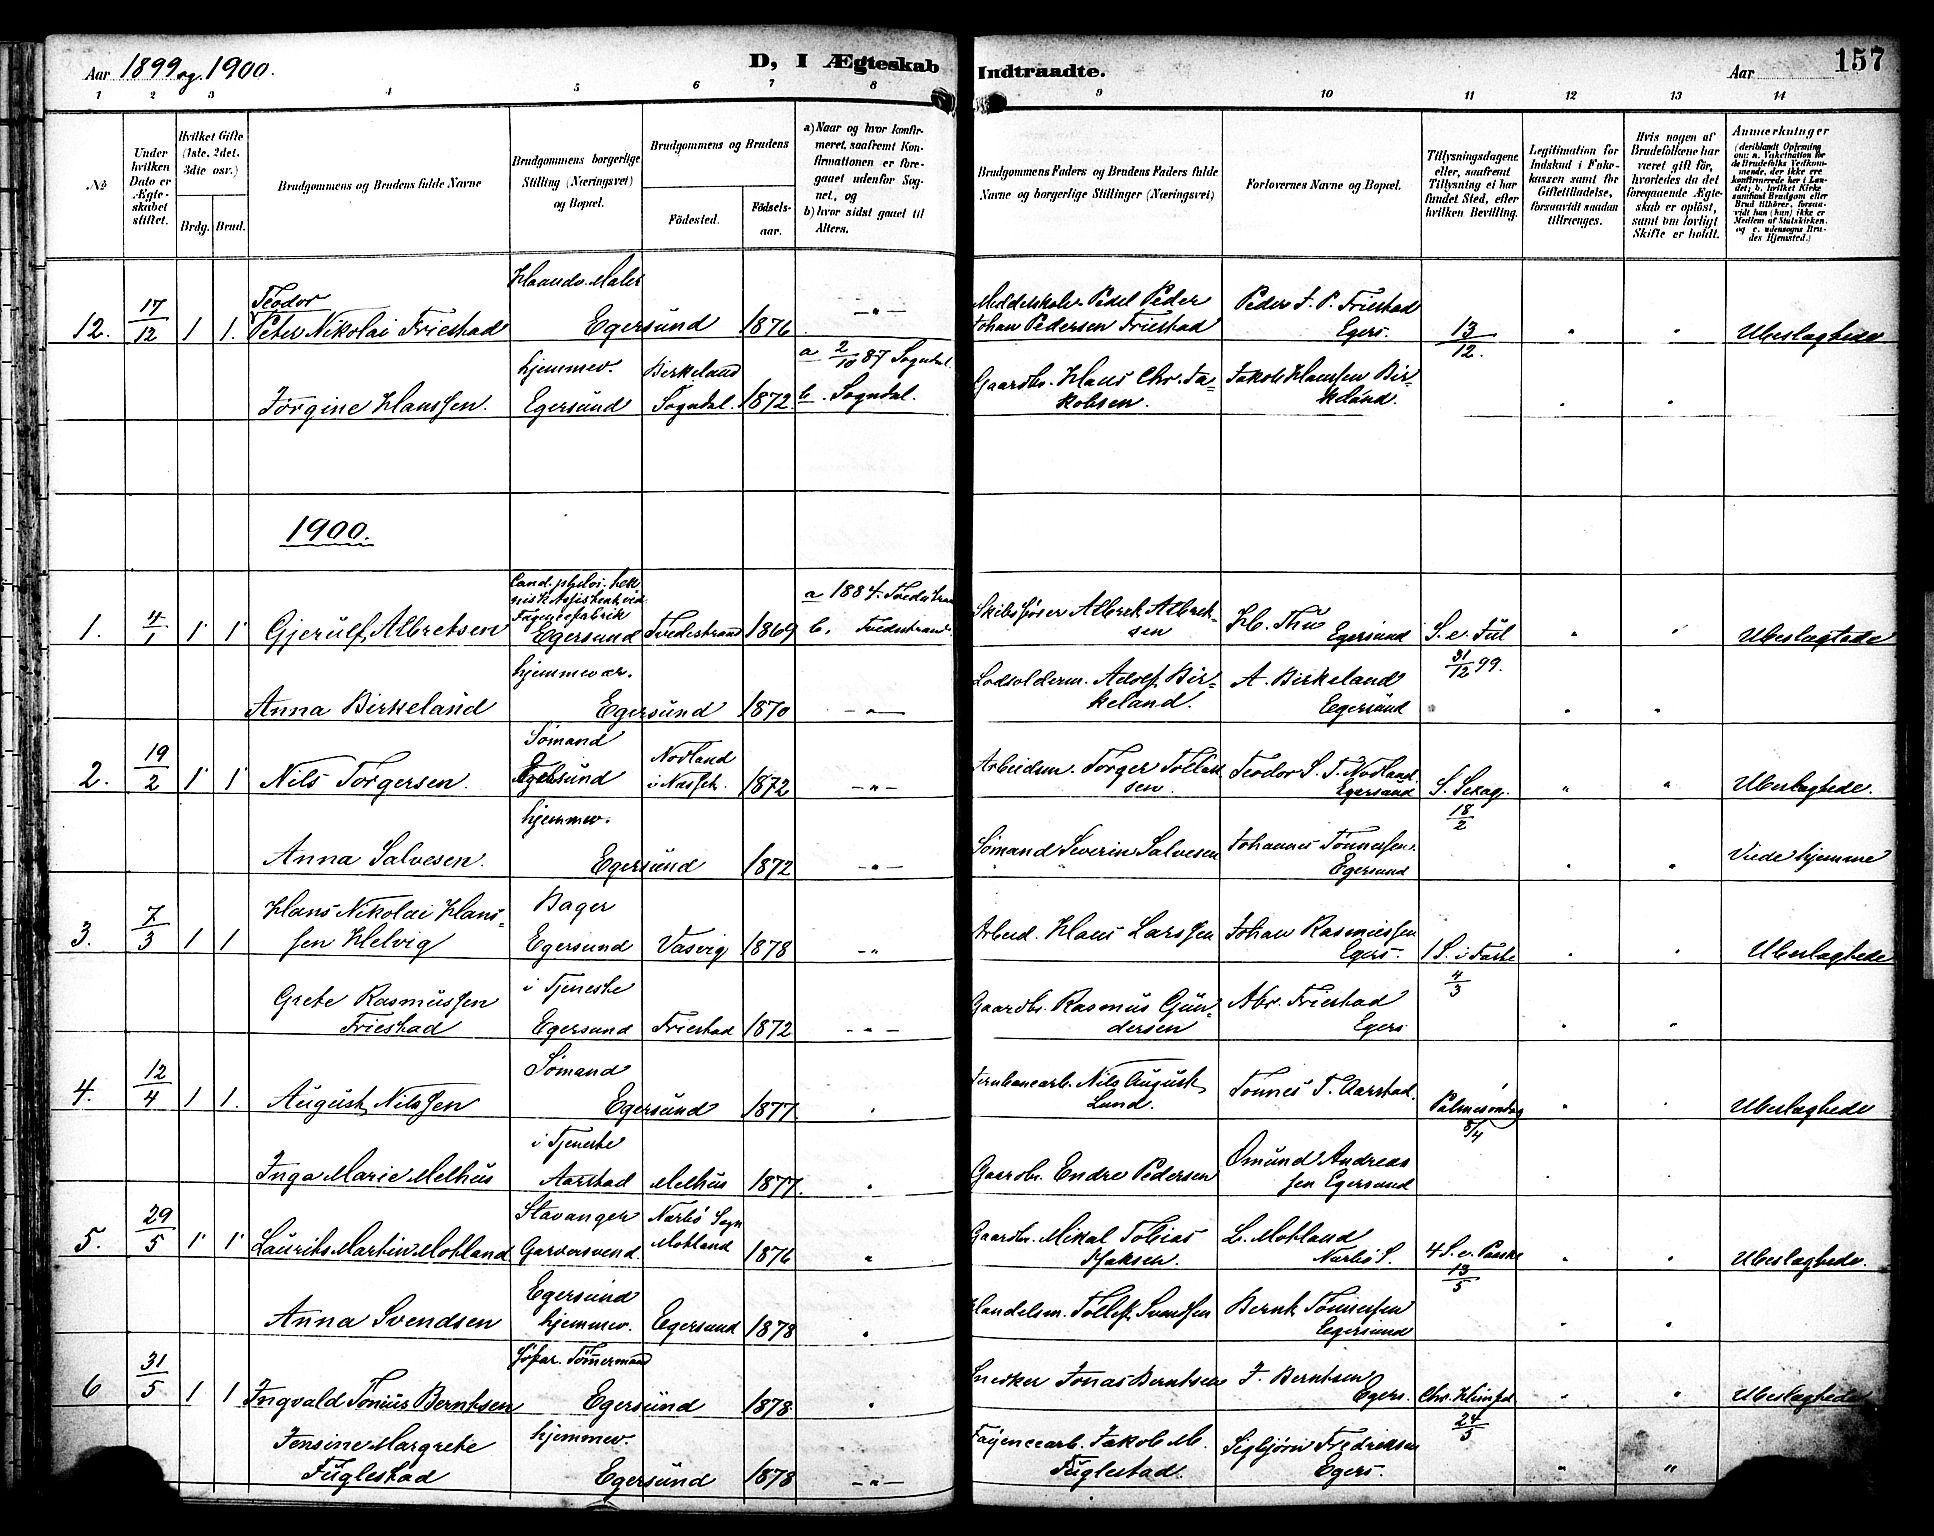 Aar 1899 og 1900.
D, I Ægteskab
Indtraadte.
Aar
157
1 2 3 4 5 6 7 8 9 10 11 12 13 14
No
Under hvilken Dato er Ægteskabet stiftet.
Hvilket Gifte (1ste, 2det, 3die osv.)
Brdg. Brud.
Brudgommens og Brudens fulde Navne
Brudgommens borgerlige Stilling (Næringsvei) og Bopæl.
Brudgommens og Brudens
Födested. Födselsaar.
a) Naar og hvor konfirmeret, saafremt Konfirmationen er foregaaet udenfor Sognet., og
b) hvor sidst gaaet til Alters.
Brudgommens Faders og Brudens Faders fulde Navne og borgerlige Stillinger (Næringsvei)
Forlovernes Navne og Bopæl.
Tillysningsdagene eller, saafremt Tillysning ei har fundet Sted, efter hvilken Bevilling.
Legitimation for Indskud i Enkekassen samt for Giftetilladelse, forsaavidt saadan tiltrænges.
Hvis nogen af Brudefolkene har været gift för, hvorledes da det foregaaende Ægteskab er oplöst, samt om lovligt Skifte er holdt.
Anmerkninger (deriblandt Oplysning om: a. Vakcination for de Brudefolks Vedkommende, der ikke ere konfirmerede her i Landet; b. hvilket Kirkesamfund Brudgom eller Brud tilhörer, forsaavidt han (hun) ikke er Medlem af Statskirken. og c. udensogns Brudes Hjemsted.)
12. 17/12 1 1. Teodor Peter Nikolai Friestad
Haandv. Maler Egersund 1876 — " —
Middelskole-Pedel Peder Johan Pedersen Friestad
Peder J. P. Friestad Egers. 13/12. " " Ubeslægtede
Jörgine Hanssen.
hjemmev. Egersund Birkeland Sogndal. 1872
a 2/10 87 Sogndal. b. Sogndal.
Gaardbr. Hans Chr. Jakobsen.
Jakob Hanssen Birkeland. " "
1900.
1. 4/1 1 1 Gjerulf Albretsen
Cand. philos. teknisk Assistent ved Fayencefabrik Egersund Tvedestrand 1869
a 1884. Tvedestrand b. Tvedestrand.
Skibsförer Albret Albretsen
H. Thu Egersund S. e. Jul 31/12 99. " " Ubeslægtede
Anna Birkeland
hjemmevær. Egersund 1870 — " —
Lodsolderm. Adolf Birkeland.
A. Birkeland Egersund " "
2. 19/2 1 1 Nils Torgersen.
Sömand Egersund Nodland i 1872 — " —
Arbeidsm. Torger Tollaksen
Teodor S. T. Nodland. Egersund S. Sexag. 18/2 " " Ubeslægtede.
Anna Salvesen.
hjemmev. Egersund 1872 — " —
Sömand Severin Salvesen
Johannes Tönnessen. Egersund " " Viede hjemme
3. 7/3 1 1 Hans Nikolai Hanssen Helvig
Bager Egersund Vasvig 1878 — "
Arbeid. Hans Larssen
Johan Rasmussen Egers. 1 S. i Faste 4/3 " " Ubeslægtede
Grete Rasmussen Friestad
i Tjeneste Egersund Friestad 1872 — " —
Gaardbr. Rasmus Gundersen
Abr. Friestad Egers " "
4. 12/4 1 1. August Nilssen
Sömand Egersund 1877. "
Jernbanearb. Nils August Lund.
Tönnes T. Aarstad. Palmesöndag 8/4 " " Ubeslægtede
Inga Marie Melhus
i Tjeneste Aarstad Melhus 1877. "
Gaardbr. Endre Pedersen
Omund Andreassen Egersund " "
5. 29/5 1 1 Laurits Martin Motland
Stavanger Garversvend Närbö Sogn Motland 1876 "
Gaardbr. Mikal Tobias Isaksen.
L. Motland Närbö S. 4 S. e. Paaske 13/5 " " Ubeslægtede.
Anna Svendsen
Egersund hjemmev. Egersund 1878 "
Handelsm. Tollef Svendsen
Bernt Tönnessen Egersund " "
6 31/5 1 1 Ingvald Tonius Berntsen
Söfar. Tömmermand Egersund 1878 "
Snedker Jonas Berntsen
J. Berntsen Egers. Chr. Himfd. 24/5 " " Ubeslægtede.
Jensine Margrete Fuglestad
hjemmev. Egersund 1878 — " —
Fayencearb. Jakob M. Fuglestad.
Sigbjörn Fredriksen Egers. " "